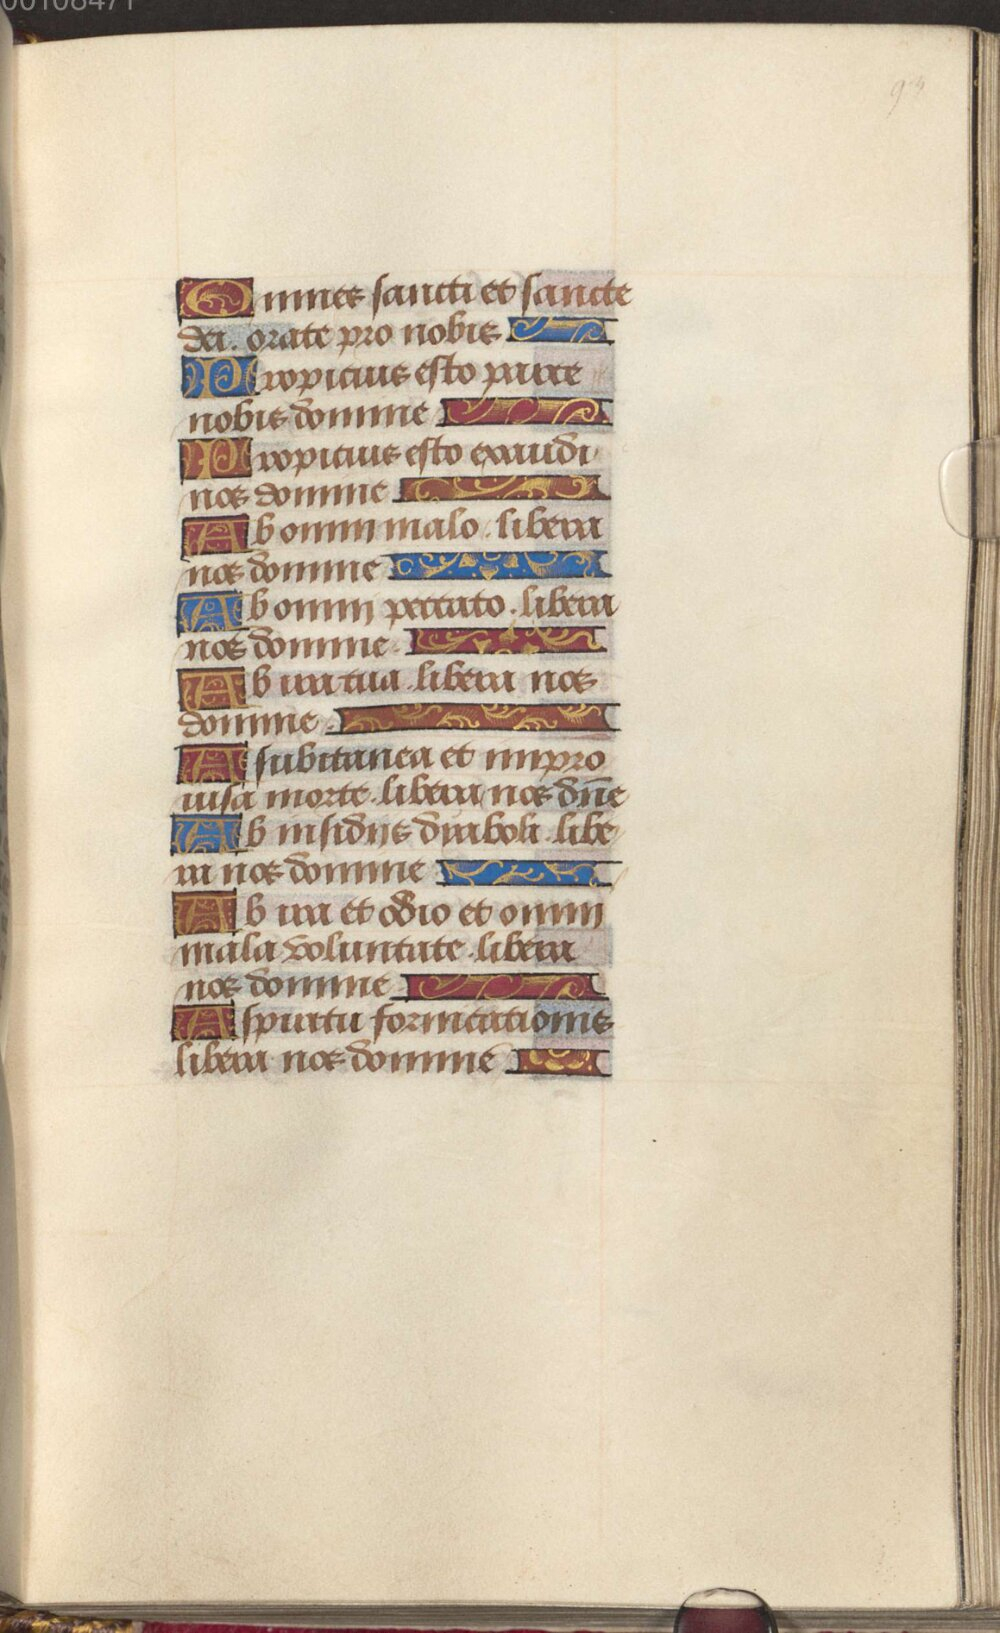 00108471
Omnes sancti et sancte
dei. orate pro nobis
Propicius esto parce
nobis domine
Propicius esto exaudi
nos domine
Ab omni malo. libera
nos domine
Ab omni peccato. libera
nos domine.
Ab ira tua. libera nos
domine.
A subitanea et impro
uisa morte. libera nos dñe
Ab insidiis diaboli. libe
ra nos domine
Ab ira et odio et omni
mala voluntate. libera
nos domine
A spiritu fornicationis
libera nos domine